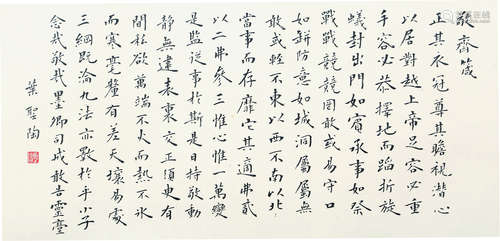 敬齋箴
正其衣冠尊其瞻視潛心
以居對越上帝足容必重
手容必恭擇地而蹈折旋
蟻封出門如賓承事如祭
戰戰兢兢罔敢或易守口
如缾防意如城洞屬屬無
敢或輕不東以西不南以北
當事而存靡它其適弗貳
以二弗參三惟心惟一萬變
是監從事於斯是曰持敬動
靜無違表裏交正須臾有
間私欲萬端不火而熱不冰
而寒毫釐有差天壤易處
三綱既淪九法亦斁於乎小子
念哉敬哉墨卿司戒敢告靈臺
葉聖陶